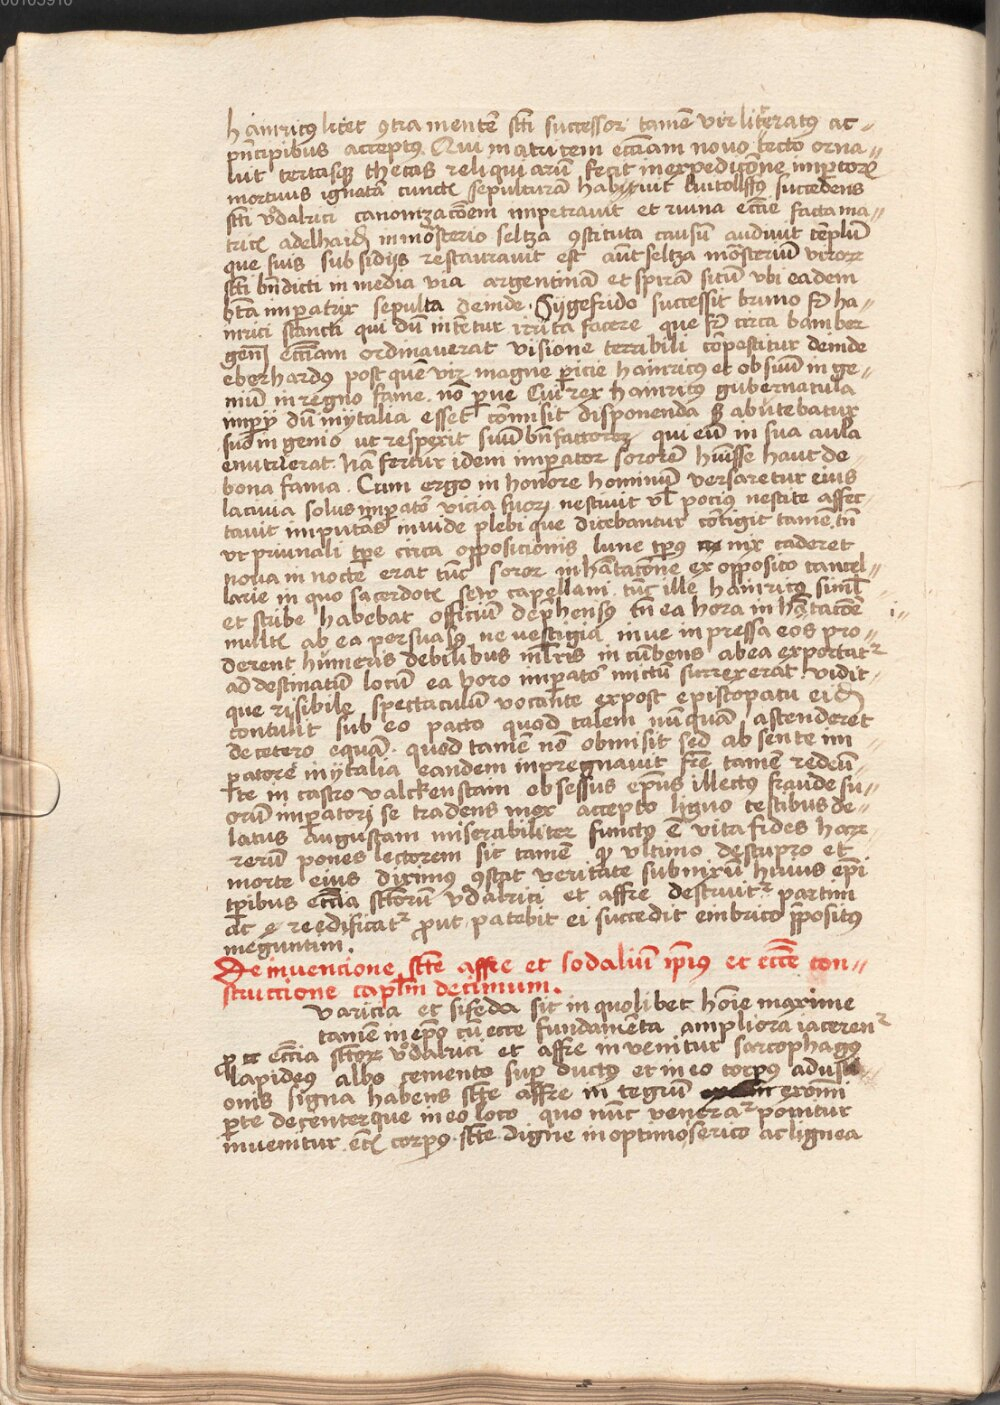 00103910
hainricus licet 9tra mentē scti successor tamē vir literatus ac〃
principibus acceptus Qui matricem ecciam novo tecto orna〃
vit tercasque thecas reliquiarū fecit in expedicōne impatoris
mortuus ignotā cunctis sepulturā habuit Luitollffus succedens
scti vdalrici canonizacōem impetravit et ruina eccie facta ma〃
tricis adelhaidis in mōsterio seltza 9stituta casum audivit templū
que suis subsidijs restauravit est aūt seltza mōsteriū virorum
scti bndicti in media via argentinā et spirā sitū vbi eadem
bta impatrix sepulta deinde Sygefrido successit bruno fr ha〃
inrici sancti qui dū nitetur irrita facere que fr circa bamber
gensem ecciam ordinaverat visione terribili cōpescitur deinde
eberhardus post quē vir magne pericie hainricus et ob suū in ge〃
niū in regno fame nō parve Cui rex hainricus gubernacula
imperij dū in ytalia esset cōmisit disponenda sed abutebatur
suo in genio ut respexit suū bnfactorem qui eū in sua aula
enutrierat Nā fertur idem imperator sororē huisse haut de〃
bona fama Cum ergo in honore hominū versaretur eius
lacivia solus imperator vicia suorum nescivit vl pocius nescire affec〃
tavit imputās invide plebi que dicebantur cōtigit tamē
ut priunali tpe circa opposicionis lune tpus nix caderet
nova in nocte erat tūc soror in hitacōne ex opposito cancel〃
larie in quo sacerdotis sew capellani tūc ille hainricus simul
et scribe habebat officiū deprhensus tn ea hora in hitacōe
multis ab ea persuasus ne vestigia nive in pressa eos pro〃
derent humeris debilibus mulieris in cūbens ab ea exportatur
ad destinatū locū ea horo imperator mictū surrexerat vidit〃
que risibile spectaculū vocante expost episcopatū eidem
contulit sub eo pacto quod talem nūquā ascenderet
de cetero equā quod tamē nō obmisit sed absente im〃
peratore in ytalia eandem inpregnavit fre tamē redeū〃
te in castro valckenstain obsessus epus illectus fraude su〃
orū imperatori se tradens mox accepto ligno testibus de〃
latus Augustam miserabiliter functus ē vita fides harum
rerū penes lectorem sit tamē quod vltimo de stupro et
morte eius diximus 9stat veritate subnixū huius epi
tpibus eccia sctorū vdalrici et affre destruitur partim
ac reedificatur prout patebit ei succedit embrico ppositus
meguntim.
De invencione scte affre et sodaliū ipius et eccie con〃
struccione caplm decimum.
Varicia et sifeda sit in quolibet hoīe maxime
tamē in epo cū ecce fundamēta ampliora iacerent
pro eccia sctorum vdalrici et affre invenitur sarcophagus
lapideus albo cemento super ductus et in eo corpus adusti
onis signa habens scte affre in tegrū ex omni
perte decenterque in eo loco quo nūc veneratur ponitur
invenitur etc corpus scte digne in optimo serico ac lignea